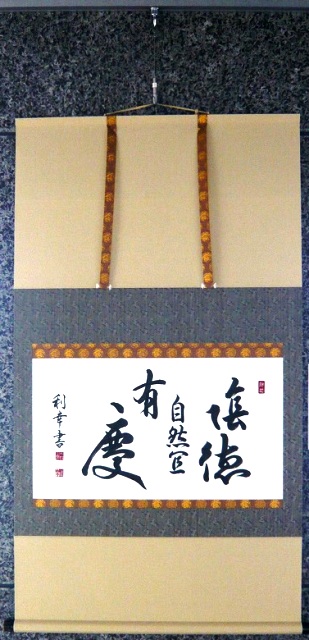 陰徳
自然宜
有慶
利幸書